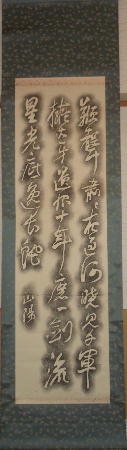 鞭聲肅々夜過河曉見千軍
擁大牙遺恨十年磨一劍流
星光底逸長蛇
山陽